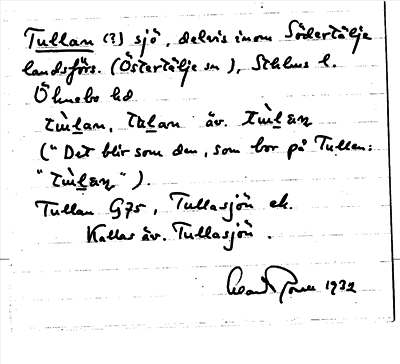 Tullan (?) sjö, delvis inom Södertälje
landsförs. (Östertälje sn), Sthlms l.
Öknebo hd
tùlan, tulan äv. tùlæɳ
("Det blir som den, som bor på Tullen:
"tùlæɳ").
Tullan G75, Tullasjön ek.
Kallas äv. Tullasjön.
1932